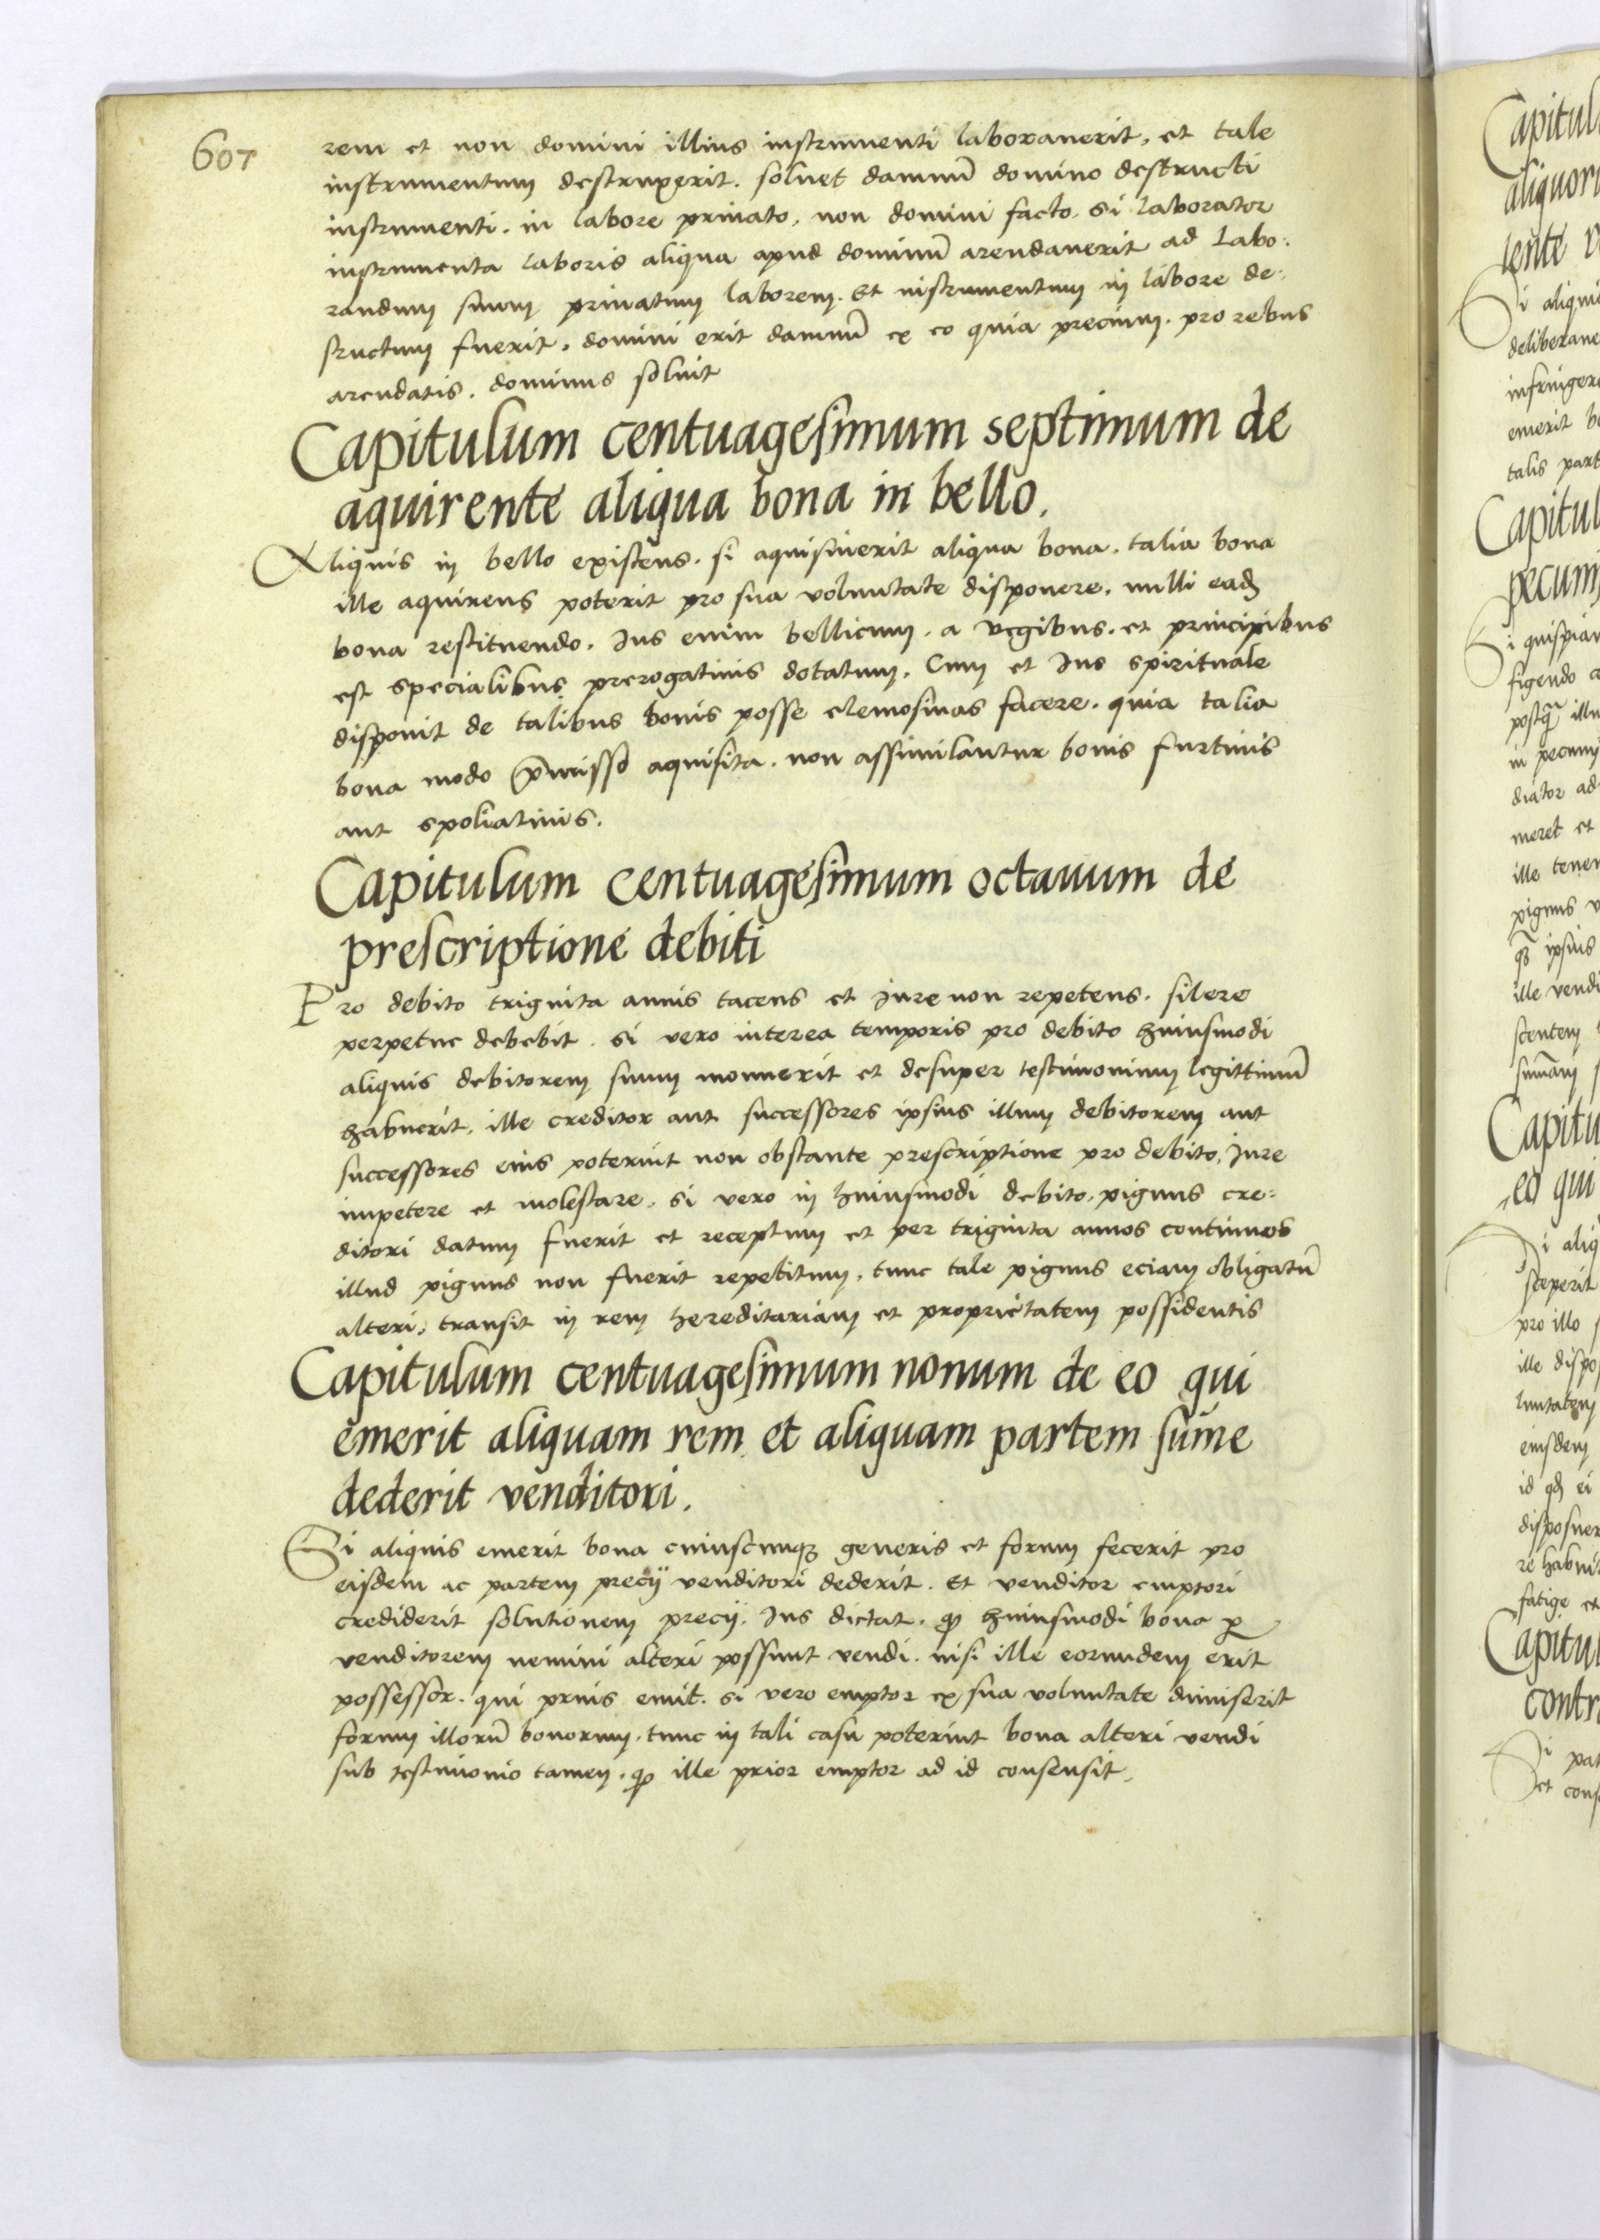 607
rem et non domini illius instrumenti laborauerit, et tale
instrumentum destruxerit. soluet damnū domino destructi
instrumenti. in labore priuato, non domini facto. si laborator
instrumenta laboris aliqua apud dominū arendauerit ad labo:
randum suum priuatum laborem. Et instrumentum in labore de:
structum fuerit. domini erit damnū ex eo quia precium. pro rebus
arendatis. dominus soluit
Capitulum centuagesimum septimum de
aquirente aliqua bona in bello.
Aliquis in bello existens. si aquisiuerit aliqua bona. talia bona
ille aquirens poterit pro sua voluntate disponere. nulli eadē
bona restituendo. Ius enim bellicum. a regibus. et principibus
est specialibus prerogatiuis dotatum. Cum et Ius spirituale
disponit de talibus bonis posse elemosinas facere. quia talia
bona modo p̄misso aquisita. non assimilantur bonis furtiuis
aut spoliatiuis.
Capitulum centuagesimum octauum de
prescriptione debiti
Pro debito triginta annis tacens et iure non repetens. silere
perpetue debebit. si vero interea temporis pro debito huiusmodi
aliquis debitorem suum monuerit et desuper testimonium legittimū
habuerit. ille creditor aut successores ipsius illum debitorem aut
successores eius poterint non obstante prescriptione pro debito, iure
impetere et molestare. si vero in huiusmodi debito, pignus cre:
ditori datum fuerit et receptum et per triginta annos continuos
illud pignus non fuerit repetitum, tunc tale pignus eciam obligatū
alteri, transit in rem hereditariam et proprietatem possidentis
Capitulum centuagesimum nonum de eo qui
emerit aliquam rem et aliquam partem sūme
dederit venditori.
Si aliquis emerit bona cuiuscunqꝫ generis et forum fecerit pro
eisdem ac partem precij venditori dederit. Et venditor emptori
crediderit solutionem precij. Ius dictat. ꝙ huiusmodi bona ꝑ
venditorem nemini alteri possunt vendi. nisi ille eorundem erit
possessor. qui prius emit. si vero emptor ex sua voluntate dimiserit
forum illorū bonorum. tunc in tali casu poterint bona alteri vendi
sub testimonio tamen. ꝙ ille prior emptor ad id consensit.